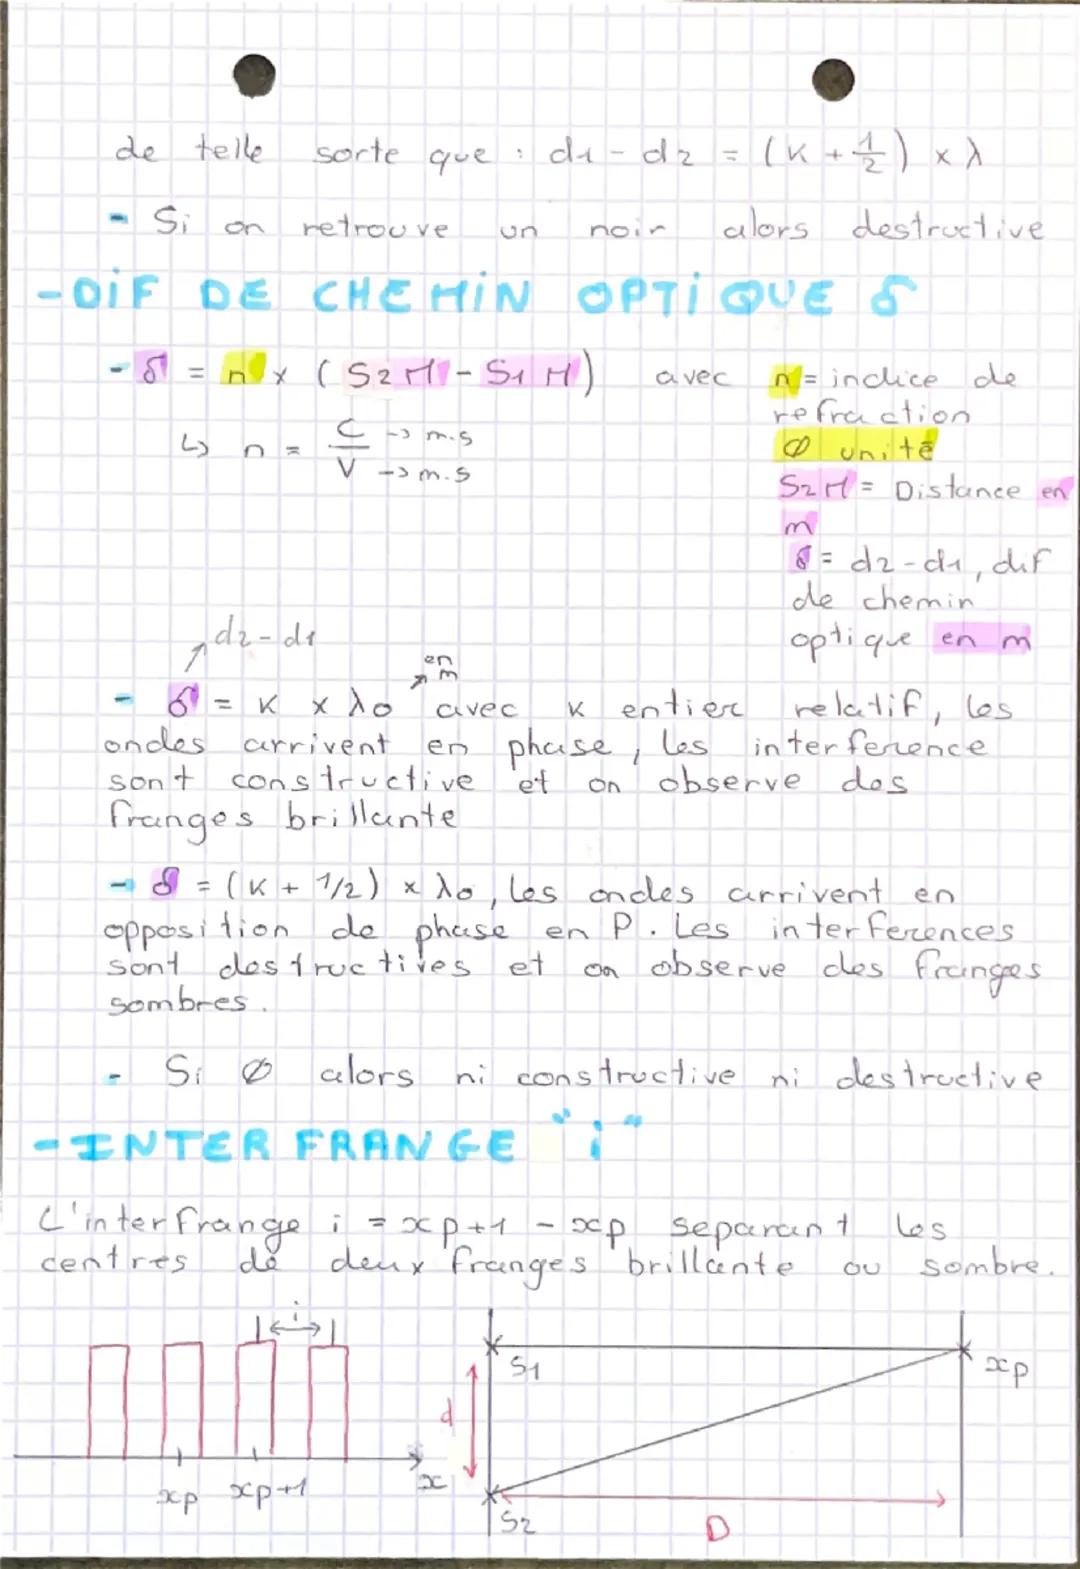 de telle sorte que : d1 - d2 = (K + 1/2) x λ
- Si on retrouve un noir alors destructive
- DiF DE CHEMiN OPTiQUE δ
- δ = n x (S2M - S1M) avec n = indice de
refraction
∅ unité
↳ n = C/V -> m.s -> m.s
S2M = Distance en
m
δ = d2 - d1, dif
de chemin
optique en m
d2 - d1
en
m
- δ = K x λ0 avec K entier relatif, les
ondes arrivent en phase, les interference
sont constructive et on observe des
franges brillante
- δ = (K + 1/2) x λ0, les ondes arrivent en
opposition de phase en P. Les interferences
sont destructives et on observe des franges
sombres.
- Si ∅ alors ni constructive ni destructive
- INTERFRANGE "i"
L'interfrange i = xp+1 - xp separant les
centres de deux franges brillante ou sombre.
i
xp xp+1 x
S1
d
S2
D
xp